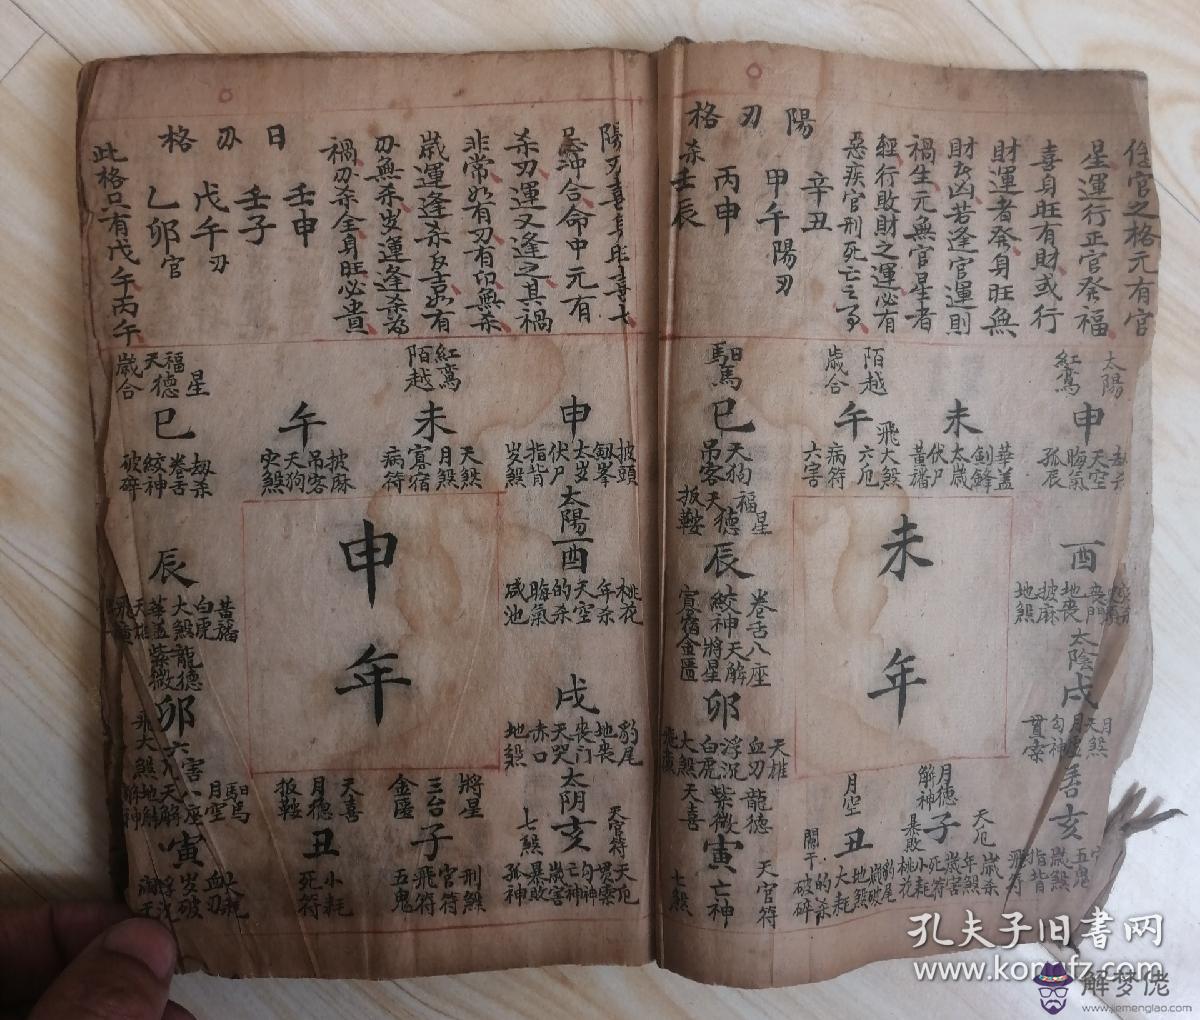 官之格元有官
星運行正官發福
喜身旺有財或行
財運者發身旺無
財去凶若逢官運則
禍生元無官星者
輕行敗財之運必有
惡疾官刑死亡之
陽刃格
辛丑
甲午陽刃
丙申
壬辰
杀
陽刃喜身旺喜七
忌冲合命中元有
杀刃運又逢之其禍
非常如有刃有印無杀
歲運逢杀反喜如有
刃無杀岁運逢杀為
禍刃杀全身旺必貴
日刃格
壬申
壬子
戊午刃
乙卯官
此格只有戊午丙午
太陽
紅鸞
申
天空
晦氣
孤辰
未
華蓋
劍鋒
太歲
伏尸
黃旛
陌越
歲合
午
飛
大煞
六厄
病符
六害
馹馬
巳
天狗
吊客
福星
天德
扳鞍
辰
卷舌八座
絞神天解
將星
寡宿金匱
卯
天雄
血刃
浮沉
白虎
大煞
龍德
紫微
天喜
寅
天官符
亡神
七煞
月空
丑
闌干
豹尾
歲破
地煞
大耗
的杀
破碎
月德
解神
子
天厄
暴敗
歲杀
年煞
歲害
死符
小耗
桃花
酉
喪門
地喪
披麻
地煞
太陰
戌
月煞
天煞
勾神
貫索
亥
五鬼
指背
飛符
未年
紅鸞
陌越
未
天煞
月煞
寡宿
病符
申
披頭
劔峯
太岁
伏尸
指背
岁煞
午
披麻
吊客
天狗
灾煞
福星
天德
歲合
巳
劫杀
卷舌
絞神
破碎
太陽
酉
桃花
年杀
天空
的杀
晦氣
咸池
辰
黃旛
白虎
大煞
華蓋
天雄
龍德
紫微
卯
六害
戌
豹尾
地喪
丧门
天哭
赤口
地煞
太阴
亥
天官符
七煞
天厄
貫索
勾神
亡神
歲害
暴敗
孤神
將星
三台
金匱
子
刑煞
官符
飛符
五鬼
天喜
月德
扳鞍
丑
小耗
死符
馹馬
月空
寅
大耗
血刃
岁破
浮沉
申年
孔夫子旧书网
www.kongfz.com
解梦佬
www.jiemenglao.com